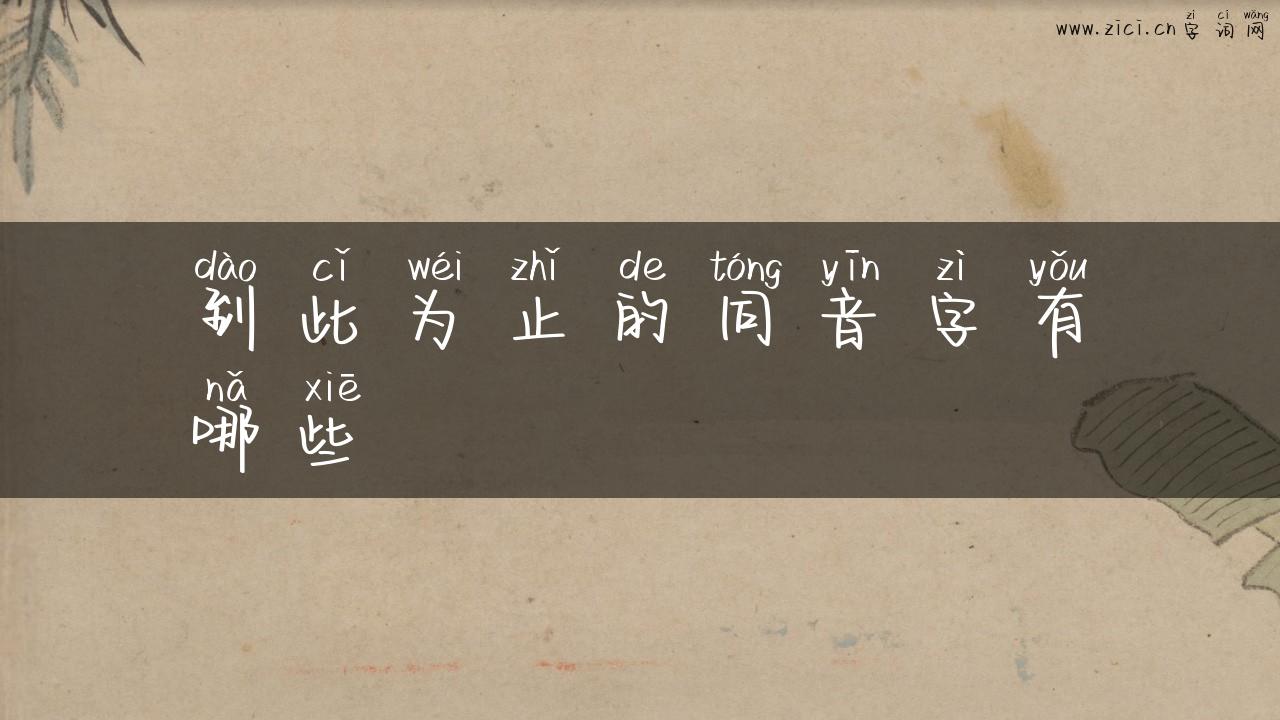 zì cí wǎng
www.zici.cn 字 词 网
dào cǐ wéi zhǐ de tóng yīn zì yǒu
到 此 为 止 的 同 音 字 有
nǎ xiē
哪 些